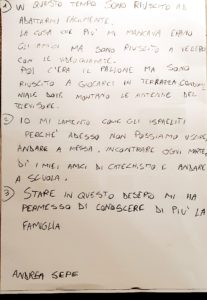 1) IN QUESTO TEMPO SONO RIUSCITO AD
ABATTARMI FACILMENTE.
LA COSA CHE PIU' MI MANCAVA ERANO
GLI AMICI MA SONO RIUSCITO A VEDERLI
CON LE VIDEOCHIAMATE.
POI C'ERA IL PALLONE MA SONO
RIUSCITO A GIOCARCI IN TERRAZZA CONDOMI
NIALE DOVE MONTANO LE ANTENNE DEL
TELEVISORE.
2) IO MI LAMENTO COME GLI ISRAELITI
PERCHE' ADESSO NON POSSIAMO USCIRE,
ANDARE A MESSA, INCONTRARE OGNI
I MIEI AMICI DI CATECHISTO E ANDARE
A SCUOLA.
3) STARE IN QUESTO DESERTO MI HA
PERMESSO DI CONOSCERE DI PIU' LA
FAMIGLIA
ANDREA SEPE